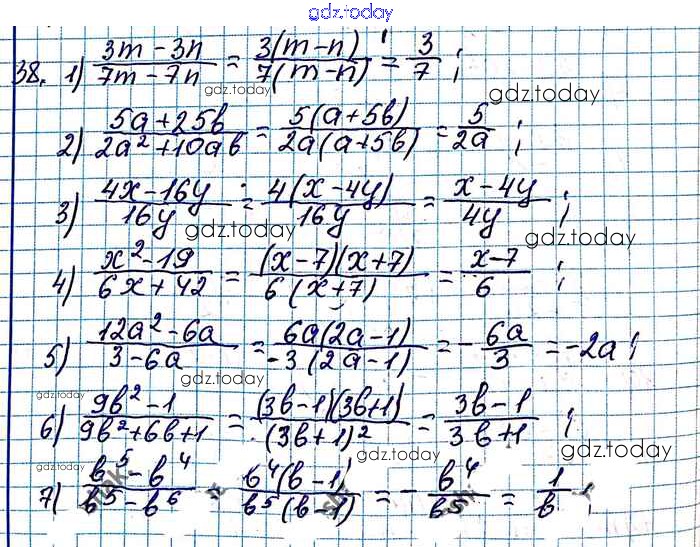 gdz.today
38. 1) (3m - 3n)/(7m - 7n) = 3(m - n)/7(m - n) = 3/7 ;
gdz.today
gdz.today
2) (5a + 25b)/(2a² + 10ab) = 5(a + 5b)/2a(a + 5b) = 5/2a ;
3) (4x - 16y)/16y = 4(x - 4y)/16y = (x - 4y)/4y ;
gdz.today
gdz.today
4) (x² - 19)/(6x + 42) = (x - 7)(x + 7)/6(x + 7) = (x - 7)/6 ;
5) (12a² - 6a)/(3 - 6a) = 6a(2a - 1)/-3(2a - 1) = - 6a/3 = -2a ;
gdz.today
gdz.today
gdz.today
6) (9b² - 1)/(9b² + 6b + 1) = (3b - 1)(3b + 1)/(3b + 1)² = (3b - 1)/(3b + 1) ;
gdz.today
gdz.today
gdz.today
7) (b⁵ - b⁴)/(b⁵ - b⁶) = b⁴(b - 1)/b⁵(b - 1) = - b⁴/b⁵ = 1/b ;